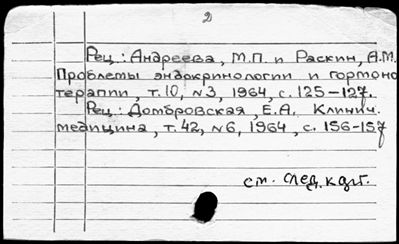 2
Рец.: Андреева, М.П. и Раскин, А.М.
Проблемы эндокринологии и гормоно
терапии, т.10, №3, 1964, с. 125-127.
Рец.: Домбровская, Е.А. Клинич.
медицина, т.42, №6, 1964, с. 156-157
см. след. карт.